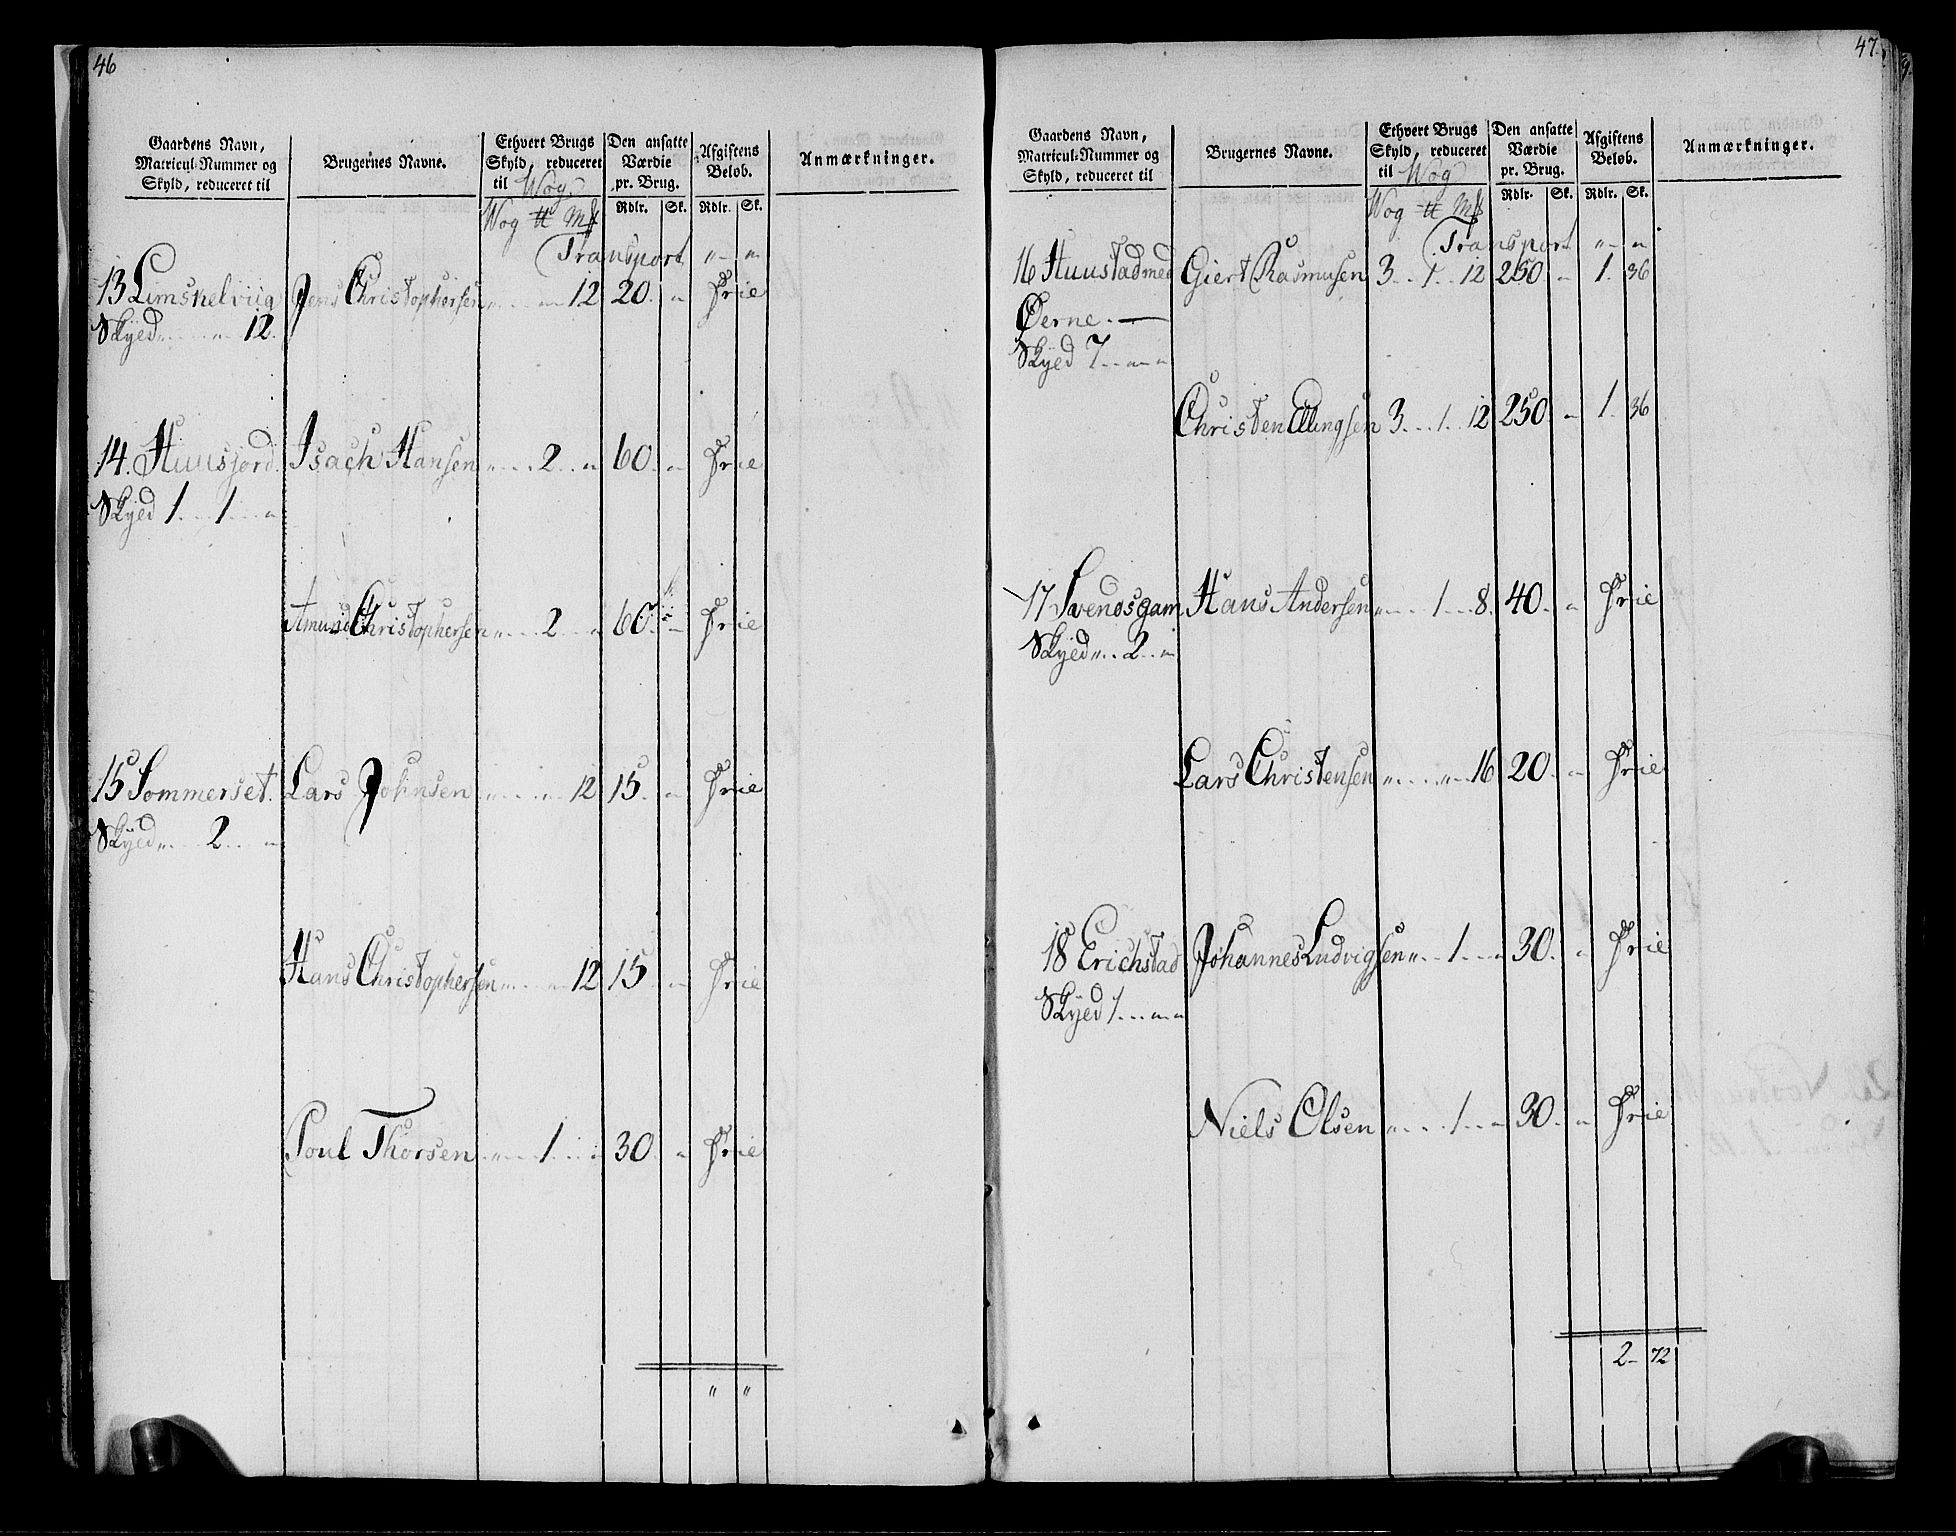 46
Gaardens Navn, Matricul-Nummer og Skyld, reduceret til
Brugernes Navne.
Ethvert Brugs Skyld, reduceret til Wog
Den ansatte Værdie pr. Brug.
Afgiftens Beløb.
Anmærkninger.
Wog ℔ Mk Rdlr. Sk. Rdlr. Sk.
Transport " — "
13 Limskelviig Jens Christophersen " .. " .. 12 20 .. " Frie
Skyed " .. " 12.
14. Huusjord. Isach Hansen " .. 2 .. " 60 .. " Frie
Skyed 1 .. 1 .. "
Amund Christophersen " .. 2 .. " 60 .. " Frie
15 Sommerset. Lars Johnsen " .. " .. 12 15 .. " Frie
Skyed " .. 2 .. "
Hans Christophersen " .. " .. 12 15 .. " Frie
Poul Thorsen " .. 1 .. " 30 .. " Frie
" "
47.
Gaardens Navn, Matricul-Nummer og Skyld, reduceret til
Brugernes Navne.
Ethvert Brugs Skyld, reduceret til Wog
Den ansatte Værdie pr. Brug.
Afgiftens Beløb.
Anmærkninger.
Wog ℔ Mk Rdlr. Sk. Rdlr. Sk.
Transport " — "
16 Huustad med Giert Rasmusen 3 .. 1 .. 12 250 .. " 1. 36
Øerne. —
Skyed 7 .. " .. "
Christen Ellingsen 3 .. 1 .. 12 250 .. " 1. 36
17 Svendsgam Hans Andersen " .. 1 .. 8. 40 .. " Frie
Skyed " .. 2 .. "
Lars Christensen " .. " .. 16 20 .. " Frie
18 Erichstad Johannes Ludvigsen " .. 1 .. " 30 .. " Frie
Skyed 1 .. " .. "
Niels Olsen " .. 1 .. " 30 .. " Frie
2 — 72